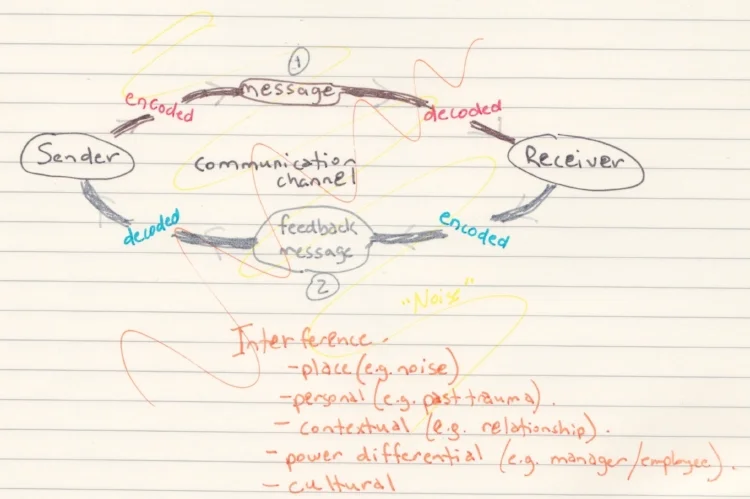 1
message
encoded
decoded
Sender
Receiver
communication
channel
decoded
feedback
message
encoded
2
"Noise"
Interference.
-place (e.g. noise)
-personal (e.g. past trauma).
- contextual (e.g. relationship).
- power differential (e.g. manager/employee).
- cultural